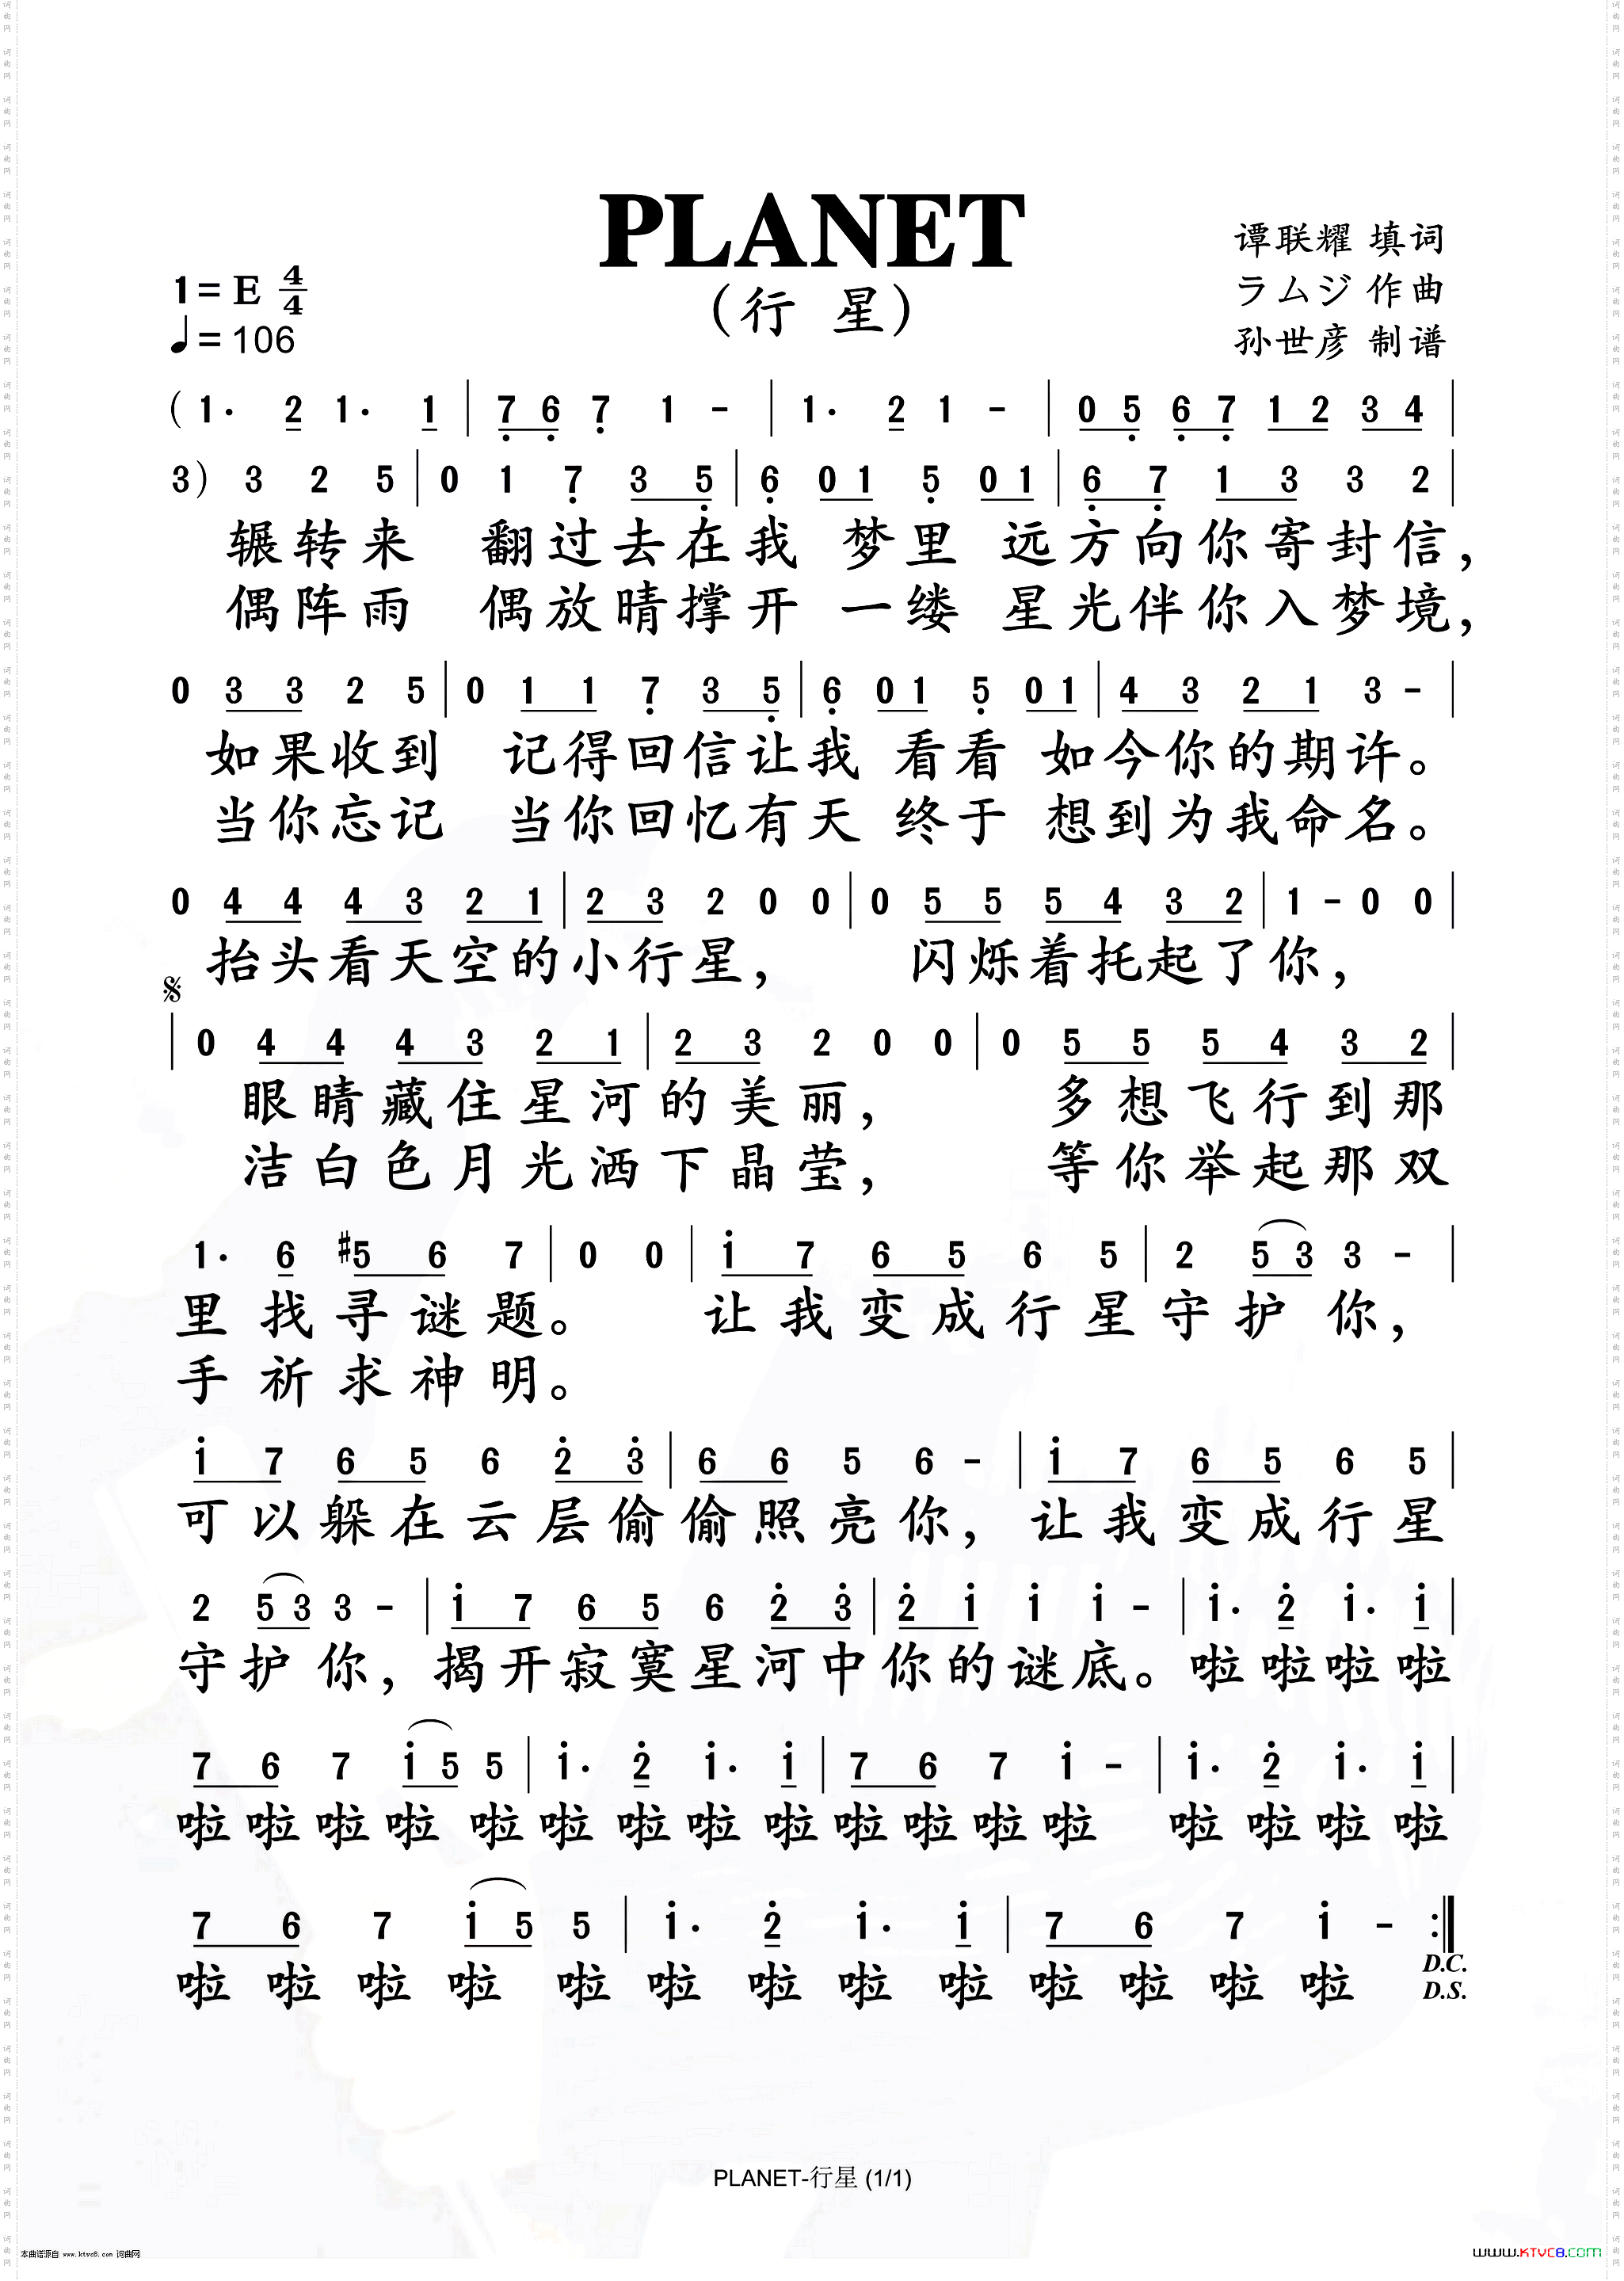 PLANET
(行 星)
谭联耀 填词
ラムジ 作曲
孙世彦 制谱
1= E 4/4
♩= 106
( 1· 2 1· 1 | 7 6 7 1 - | 1· 2 1 - | 0 5 6 7 1 2 3 4 |
3) 3 2 5 | 0 1 7 3 5 | 6 0 1 5 0 1 | 6 7 1 3 3 2 |
辗转来 翻过去在我 梦里 远方向你寄封信，
偶阵雨 偶放晴撑开 一缕 星光伴你入梦境，
0 3 3 2 5 | 0 1 1 7 3 5 | 6 0 1 5 0 1 | 4 3 2 1 3 - |
如果收到 记得回信让我 看看 如今你的期许。
当你忘记 当你回忆有天 终于 想到为我命名。
0 4 4 4 3 2 1 | 2 3 2 0 0 | 0 5 5 5 4 3 2 | 1 - 0 0 |
抬头看天空的小行星， 闪烁着托起了你，
𝄋
| 0 4 4 4 3 2 1 | 2 3 2 0 0 | 0 5 5 5 4 3 2 |
眼睛藏住星河的美丽， 多想飞行到那
洁白色月光洒下晶莹， 等你举起那双
1· 6 #5 6 7 | 0 0 | i 7 6 5 6 5 | 2 5 3 3 - |
里找寻谜题。 让我变成行星守护 你，
手祈求神明。
i 7 6 5 6 2̇ 3̇ | 6 6 5 6 - | i 7 6 5 6 5 |
可以躲在云层偷偷照亮你，让我变成行星
2 5 3 3 - | i 7 6 5 6 2̇ 3̇ | 2̇ i i i - | i· 2̇ i· i |
守护 你，揭开寂寞星河中你的谜底。啦啦啦啦
7 6 7 i 5 5 | i· 2̇ i· i | 7 6 7 i - | i· 2̇ i· i |
啦啦啦啦 啦啦啦啦 啦啦啦啦啦 啦啦啦啦
7 6 7 i 5 5 | i· 2̇ i· i | 7 6 7 i - :|
啦 啦 啦 啦 啦 啦 啦 啦 啦 啦 啦 啦 啦
D.C.
D.S.
PLANET-行星 (1/1)
本曲谱源自 www.ktvc8.com 词曲网
WWW.KTVC8.COM